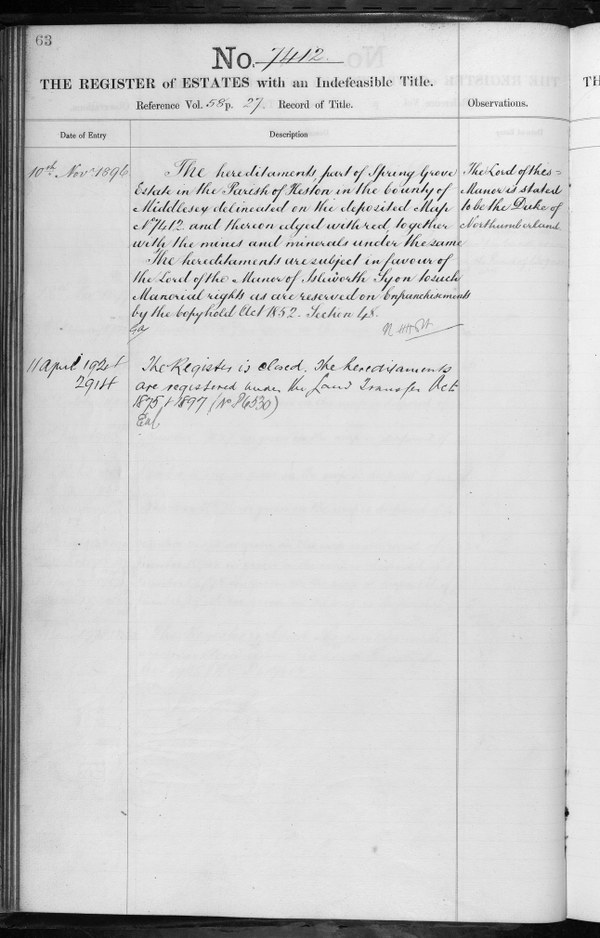 63
No. 7412.
THE REGISTER of ESTATES with an Indefeasible Title.
Reference Vol. 58 p. 27 Record of Title.
Observations.
Date of Entry
Description
10th Novr 1896
The hereditaments part of Spring Grove
Estate in the Parish of Heston in the County of
Middlesex delineated on the deposited Map
No 7412 and thereon edged with red, together
with the mines and minerals under the same
The hereditaments are subject in favour of
the Lord of the Manor of Isleworth Syon to such
Manorial rights as are reserved on Enfranchisements
by the Copyhold Act 1852. Section 48.
The Lord of this =
Manor is stated
to be the Duke of
Northumberland
11 April 192
2914
The Register is closed. The hereditaments
are registered under the Land Transfer Act
1875 & 1897 (No P6530)
TH